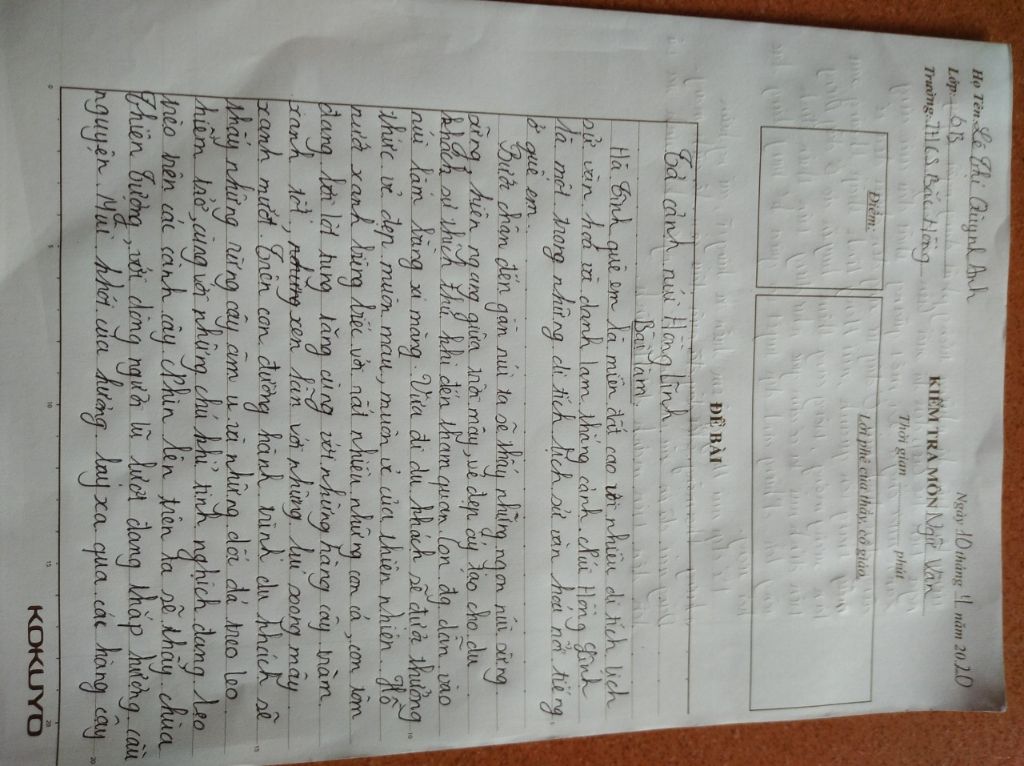 Họ Tên: Lê Thị Quỳnh Anh
Lớp: 6B
Trường: THCS Bắc Hồng
Ngày 10 tháng 4 năm 2020
KIỂM TRA MÔN Ngữ Văn
Thời gian phút
Điểm:
Lời phê của thầy, cô giáo
ĐỀ BÀI
Tả cảnh núi Hồng Lĩnh
Bài làm
Hà Tĩnh quê em là miền đất cao với nhiều di tích lịch
sử văn hoá và danh lam thắng cảnh. Núi Hồng Lĩnh
là một trong những di tích lịch sử văn hoá nổi tiếng
ở quê em.
Bước chân đến gần núi ta sẽ thấy những ngọn núi sừng
sững, hiên ngang giữa trời mây, vẻ đẹp ấy tạo cho du
khách sự thích thú khi đến thăm quan. Con đg dẫn vào
núi làm bằng xi măng. Vừa đi du khách sẽ được thưởng
thức vẻ đẹp muôn màu, muôn vẻ của thiên nhiên. Hồ
nước xanh biêng biếc với rất nhiều những con cá, con tôm
đang bơi lội tung tăng cùng với những hàng cây tràm
xanh tốt, xen lẫn với những bụi soong mây
xanh mướt. Trên con đường hành trình du khách sẽ
thấy những rừng cây âm u và những dốc đá treo leo
hiểm trở, cùng với những chú khỉ tinh nghịch đang leo
trèo trên các cành cây. Nhìn lên trên ta sẽ thấy chùa
Thiên Tượng, với dòng người lũ lượt đang thắp hương cầu
nguyện. Mùi khói của hương bay xa qua các hàng cây
KOKUYO